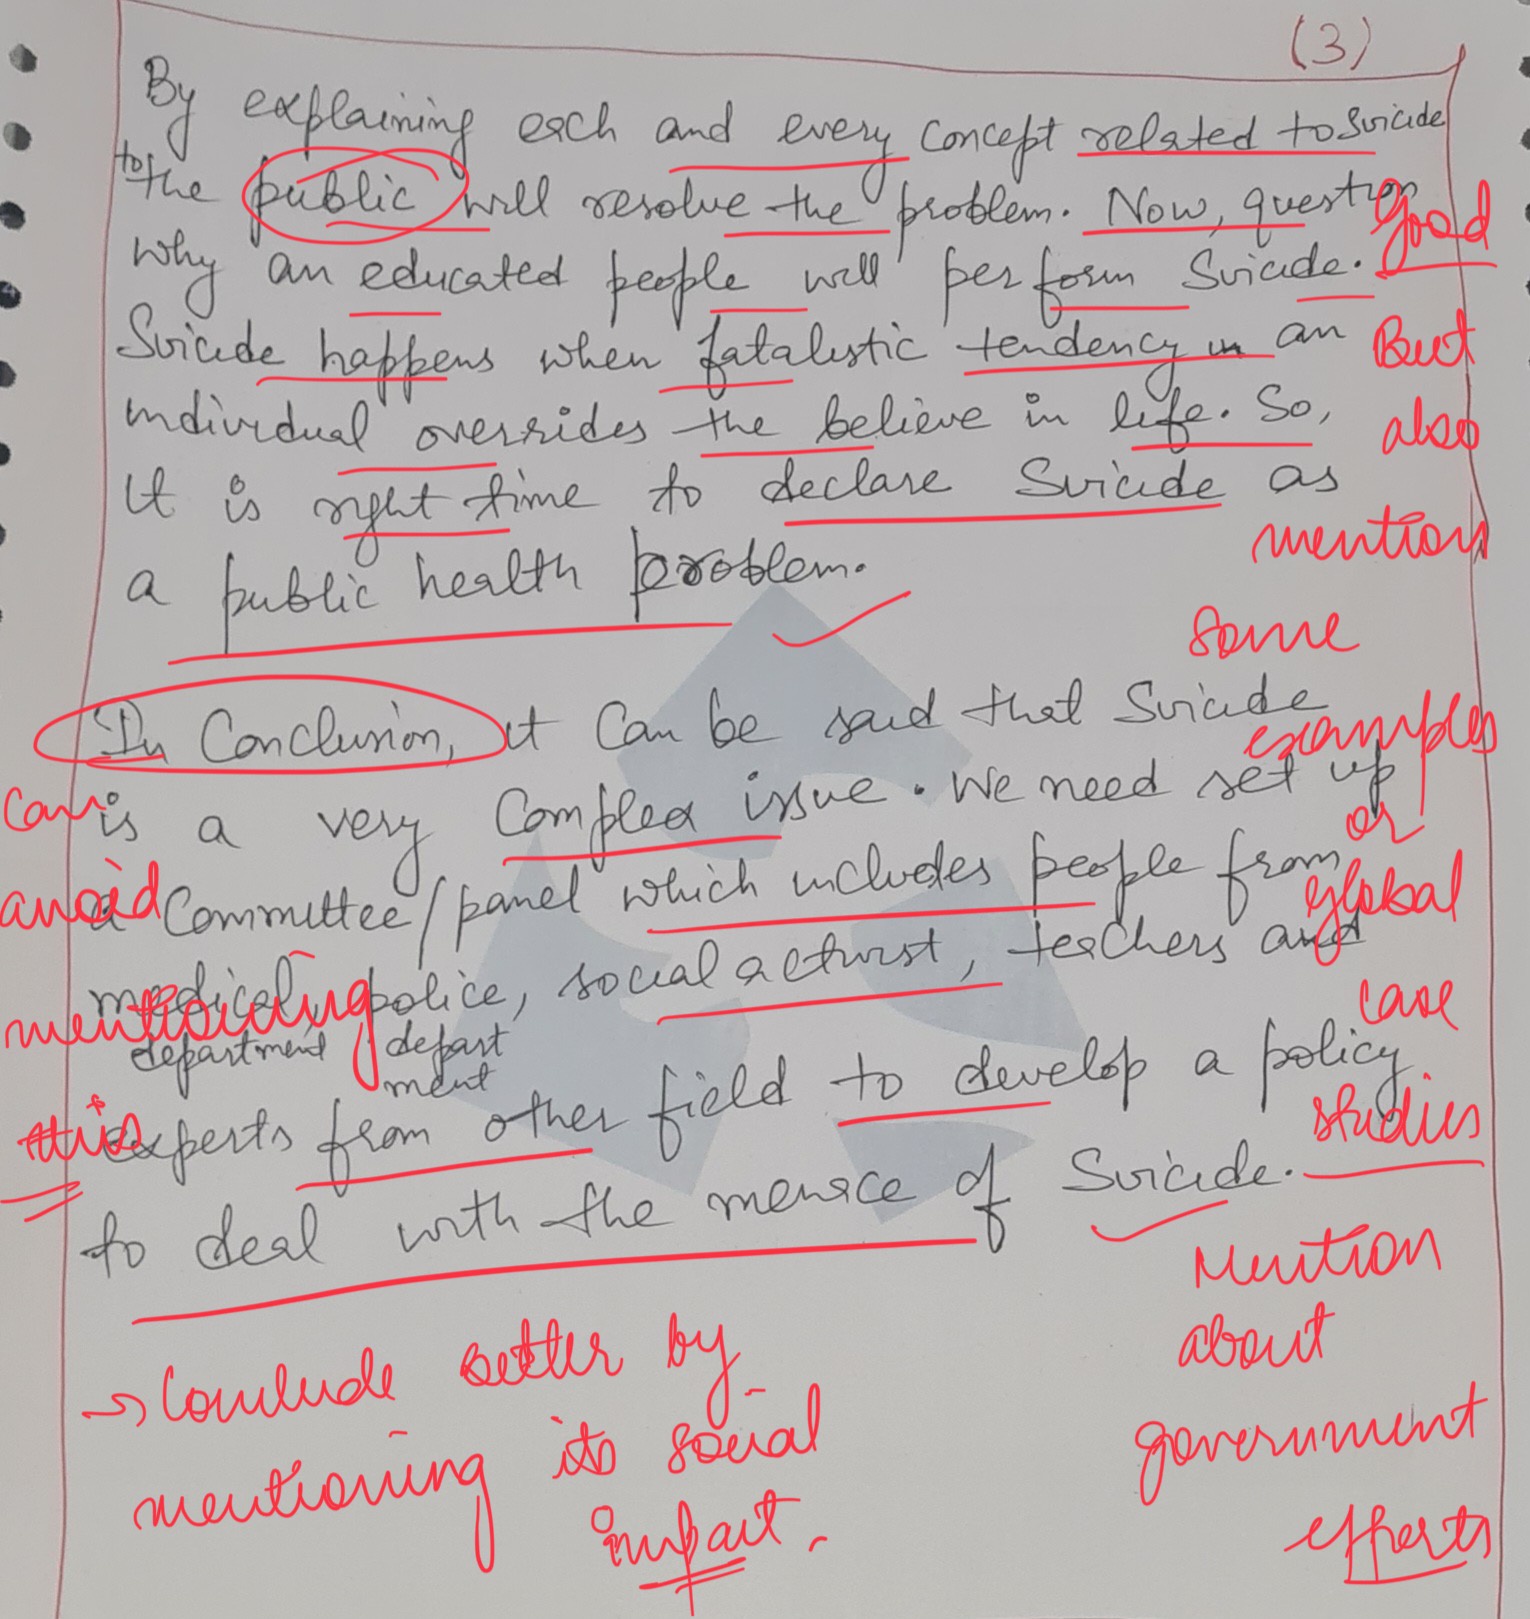 (3)
By explaining each and every concept related to Suicide
to the public will resolve the problem. Now, question
why an educated people will perform Suicide.
Suicide happens when fatalistic tendency in an
individual overrides the believe in life. So,
it is right time to declare Suicide as
a public health problem.
In Conclusion, it Can be said that Suicide
is a very Complex issue. We need set up
a Committee/panel which includes people from
medical, police, social activist, teachers and
department depart
ment
experts from other field to develop a policy
to deal with the menace of Suicide.
Good
But
also
mention
some
examples
or
global
case
studies
Mention
about
government
efforts
Can
avoid
mentioning
this
→ Conclude better by
mentioning its social
impact.